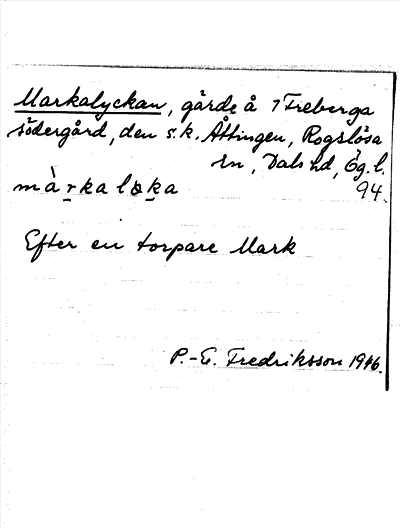 Markalyckan, gärde å 7 Freberga
södergård, den s.k. Åttingen, Rogslösa
sn, Dals hd, Ög. l.
màrkaløka 94.
Efter en torpare Mark
P.-E. Fredriksson 1946.